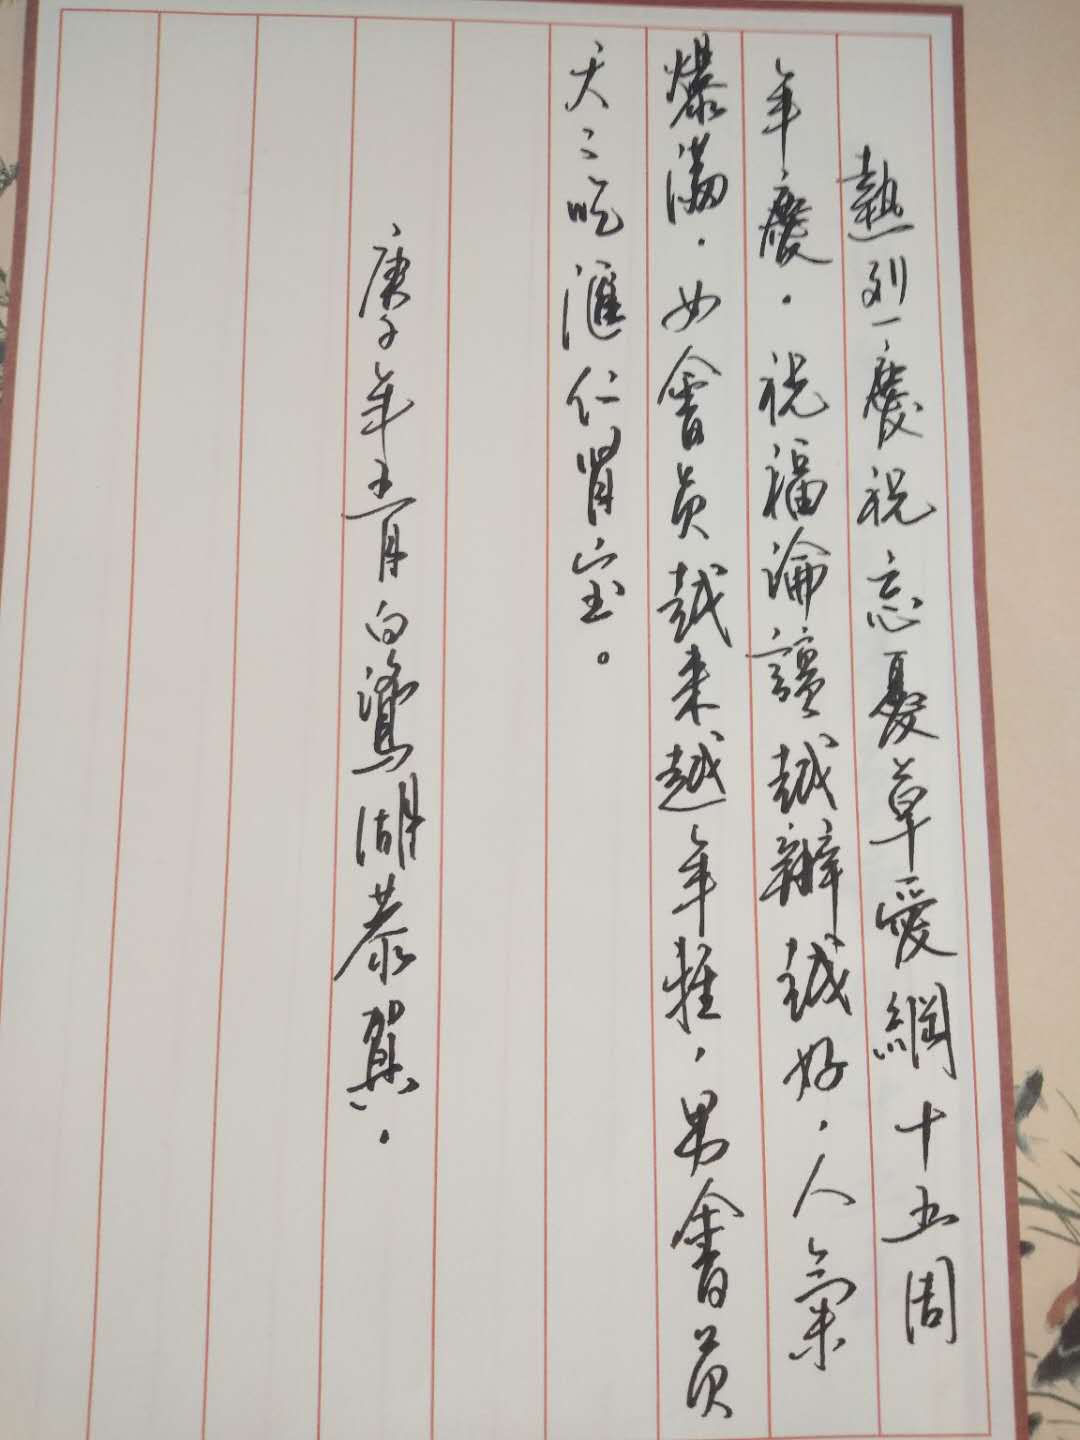 熱烈慶祝忘憂草愛網十五周
年慶．祝福論壇越辦越好，人氣
爆滿．女會員越来越年輕，男會員
天天吃滙仁腎宝。
庚子年五月白鷺湖恭賀．